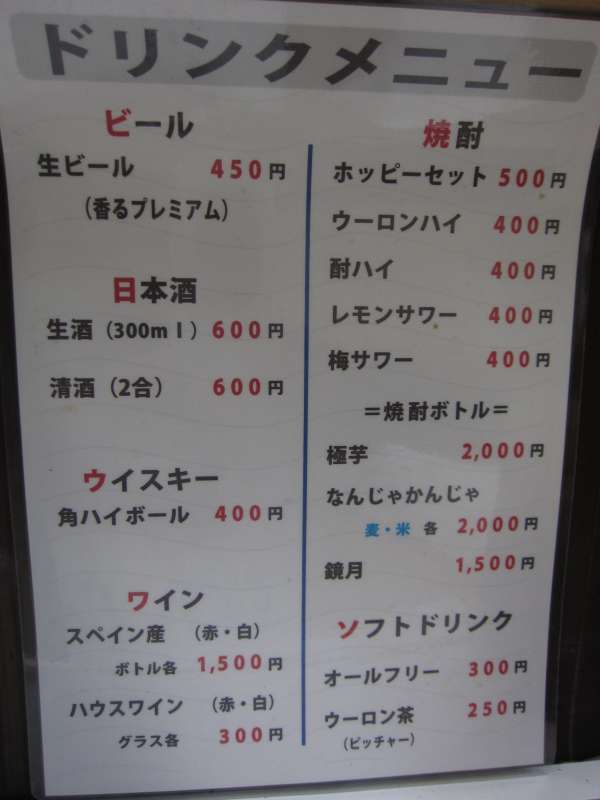 ドリンクメニュー
ビール
生ビール 450円
（香るプレミアム）
日本酒
生酒（300ml）600円
清酒（2合） 600円
ウイスキー
角ハイボール 400円
ワイン
スペイン産 （赤・白）
ボトル各 1,500円
ハウスワイン （赤・白）
グラス各 300円
焼酎
ホッピーセット 500円
ウーロンハイ 400円
酎ハイ 400円
レモンサワー 400円
梅サワー 400円
＝焼酎ボトル＝
極芋 2,000円
なんじゃかんじゃ
麦・米 各 2,000円
鏡月 1,500円
ソフトドリンク
オールフリー 300円
ウーロン茶 250円
（ピッチャー）